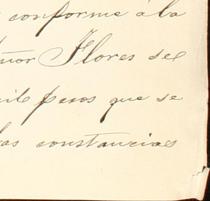 conforme á la
Flores del
pesos que se
las constancias